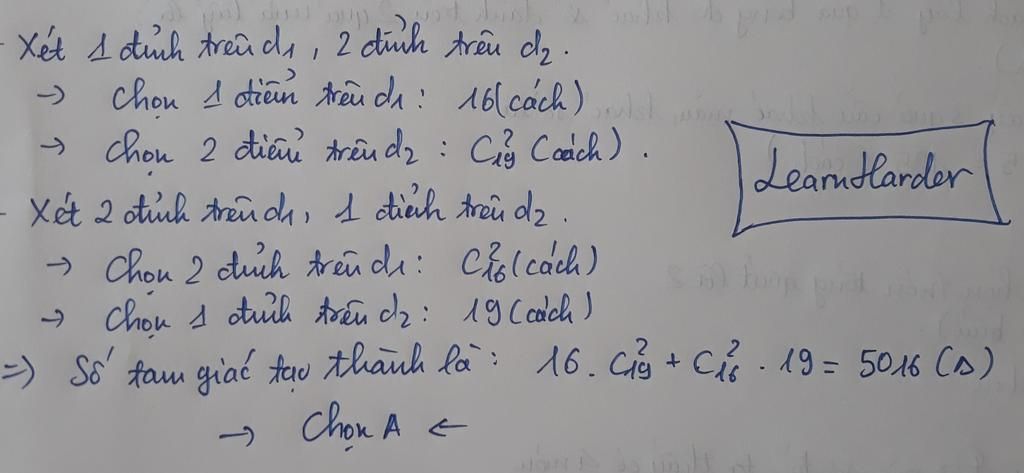 - Xét 1 đỉnh trên d1, 2 đỉnh trên d2.
→ Chọn 1 điểm trên d1: 16 (cách)
→ Chọn 2 điểm trên d2: C²₁₉ (cách).
LearnHarder
- Xét 2 đỉnh trên d1, 1 đỉnh trên d2.
→ Chọn 2 đỉnh trên d1: C²₁₆ (cách)
→ Chọn 1 đỉnh trên d2: 19 (cách)
=> Số tam giác tạo thành là: 16. C²₁₉ + C²₁₆ . 19 = 5016 (Δ)
→ Chọn A ←